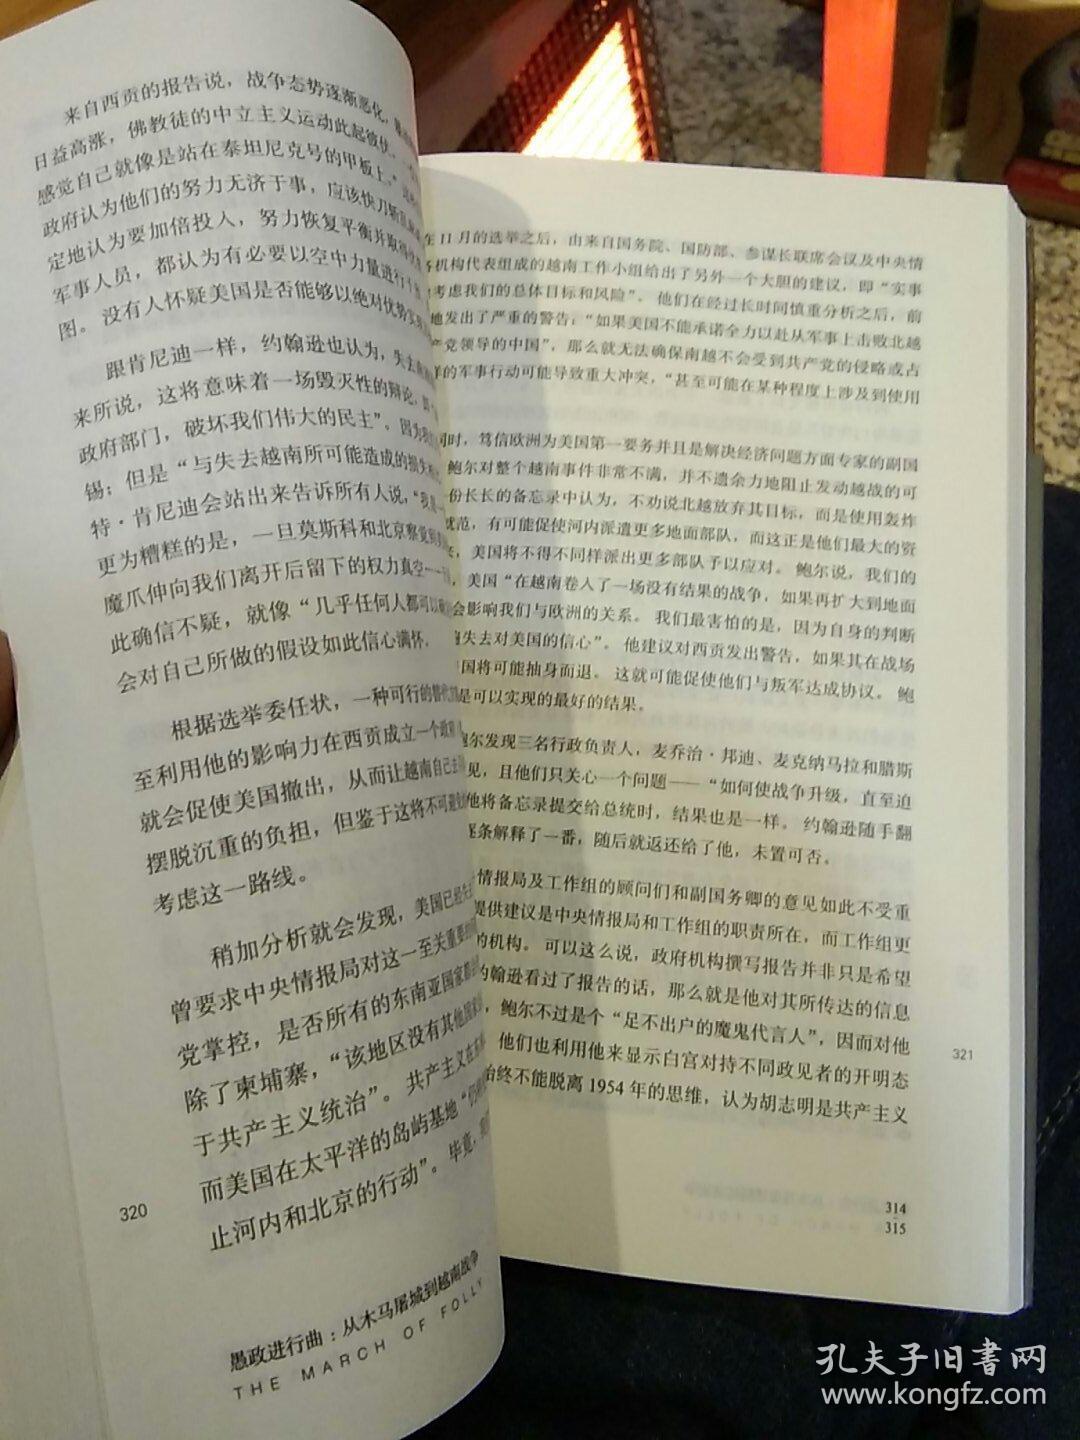 来自西贡的报告说，战争态势逐渐恶化，
日益高涨，佛教徒的中立主义运动此起彼伏。
感觉自己就像是站在泰坦尼克号的甲板上。”
政府认为他们的努力无济于事，应该快刀斩乱麻
定地认为要加倍投入，努力恢复平衡并取得
军事人员，都认为有必要以空中力量进行
图。没有人怀疑美国是否能够以绝对优势
跟肯尼迪一样，约翰逊也认为，失去
来所说，这将意味着一场毁灭性的辩论，
政府部门，破坏我们伟大的民主”。因为
锡；但是“与失去越南所可能造成的损失
特·肯尼迪会站出来告诉所有人说，
更为糟糕的是，一旦莫斯科和北京察觉到
魔爪伸向我们离开后留下的权力真空——
此确信不疑，就像“几乎任何人都可以
会对自己所做的假设如此信心满怀。
根据选举委任状，一种可行的替代
至利用他的影响力在西贡成立一个政府
就会促使美国撤出，从而让越南自己去
摆脱沉重的负担，但鉴于这将不可避免
考虑这一路线。
稍加分析就会发现，美国已经失去
曾要求中央情报局对这一至关重要的
党掌控，是否所有的东南亚国家都
除了柬埔寨，“该地区没有其他国家
于共产主义统治”。共产主义在东南
而美国在太平洋的岛屿基地“仍
止河内和北京的行动”。毕竟，
320
愚政进行曲：从木马屠城到越南战争
THE MARCH OF FOLLY
在11月的选举之后，由来自国务院、国防部、参谋长联席会议及中央情
机构代表组成的越南工作小组给出了另外一个大胆的建议，即“实事
考虑我们的总体目标和风险”。他们在经过长时间慎重分析之后，前
地发出了严重的警告：“如果美国不能承诺全力以赴从军事上击败北越
产党领导的中国”，那么就无法确保南越不会受到共产党的侵略或占
样的军事行动可能导致重大冲突，“甚至可能在某种程度上涉及到使用
同时，笃信欧洲为美国第一要务并且是解决经济问题方面专家的副国
鲍尔对整个越南事件非常不满，并不遗余力地阻止发动越战的可
份长长的备忘录中认为，不劝说北越放弃其目标，而是使用轰炸
就范，有可能促使河内派遣更多地面部队，而这正是他们最大的资
，美国将不得不同样派出更多部队予以应对。鲍尔说，我们的
，美国“在越南卷入了一场没有结果的战争，如果再扩大到地面
会影响我们与欧洲的关系。我们最害怕的是，因为自身的判断
失去对美国的信心”。他建议对西贡发出警告，如果其在战场
国将可能抽身而退。这就可能促使他们与叛军达成协议。鲍
是可以实现的最好的结果。
鲍尔发现三名行政负责人，麦乔治·邦迪、麦克纳马拉和腊斯
见，且他们只关心一个问题——“如何使战争升级，直至迫
他将备忘录提交给总统时，结果也是一样。约翰逊随手翻
逐条解释了一番，随后就返还给了他，未置可否。
情报局及工作组的顾问们和副国务卿的意见如此不受重
提供建议是中央情报局和工作组的职责所在，而工作组更
的机构。可以这么说，政府机构撰写报告并非只是希望
约翰逊看过了报告的话，那么就是他对其所传达的信息
，鲍尔不过是个“足不出户的魔鬼代言人”，因而对他
他们也利用他来显示白宫对持不同政见者的开明态
始终不能脱离1954年的思维，认为胡志明是共产主义
321
314
315
孔夫子旧书网
www.kongfz.com